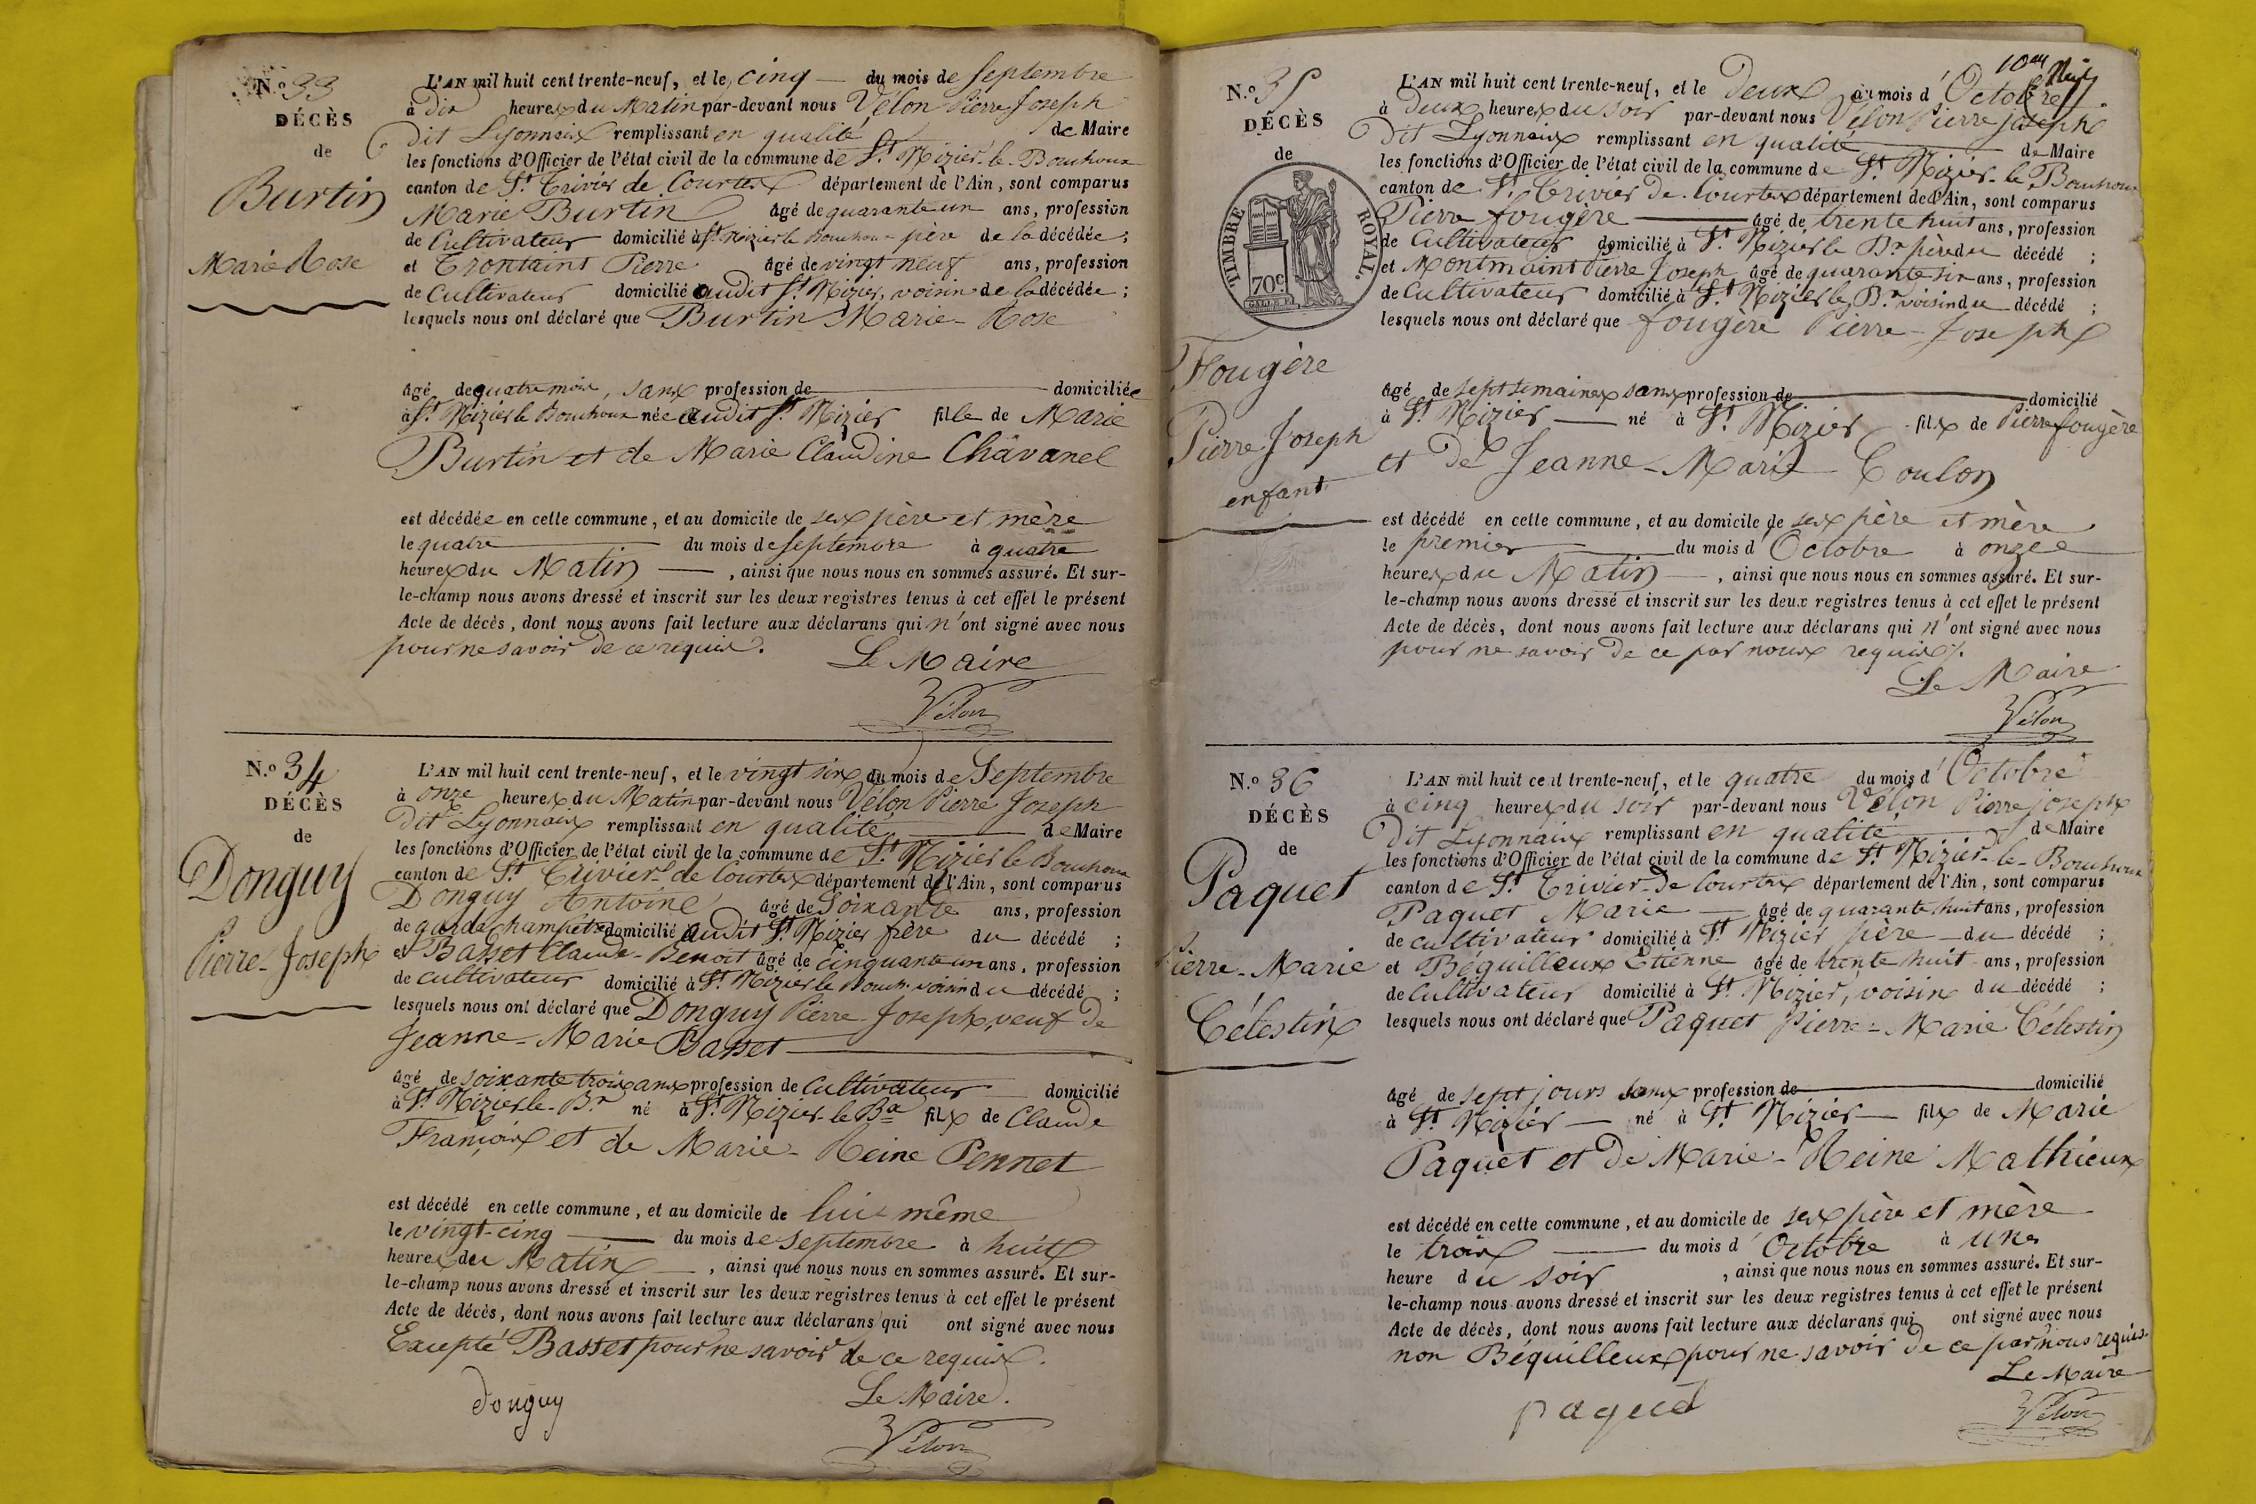 N.o 33
DÉCÈS
de
Burtin
Marie Rose
L'AN mil huit cent trente-neuf, et le cinq du mois de Septembre
à dix heures du Matin par-devant nous Vélon Pierre Joseph
dit Lyonnais remplissant en qualité de Maire
les fonctions d'Officier de l'état civil de la commune de St Nizier-le-Bouchoux
canton de St Trivier de Courtes département de l'Ain, sont comparus
Marie Burtin âgé de quarante un ans, profession
de Cultivateur domicilié à St Nizier le Bouchoux père de la décédée ;
et Trontaint Pierre âgé de vingt neuf ans, profession
de Cultivateur domicilié audit St Nizier, voisin de la décédée ;
lesquels nous ont déclaré que Burtin Marie-Rose
âgé de quatre mois, sans profession de domiciliée
à St Nizier le Bouchoux née audit St Nizier fille de Marie
Burtin et de Marie Claudine Chavanel
est décédée en cette commune, et au domicile de ses père et mère
le quatre du mois de Septembre à quatre
heures du Matin , ainsi que nous nous en sommes assuré. Et sur-
le-champ nous avons dressé et inscrit sur les deux registres tenus à cet effet le présent
Acte de décès, dont nous avons fait lecture aux déclarans qui n'ont signé avec nous
pour ne savoir de ce requis.
Le Maire
Vélon
N.o 34
DÉCÈS
de
Donguy
Pierre-Joseph
L'AN mil huit cent trente-neuf, et le vingt six du mois de Septembre
à onze heures du Matin par-devant nous Vélon Pierre Joseph
Dit Lyonnais remplissant en qualité de Maire
les fonctions d'Officier de l'état civil de la commune de St Nizier le Bouchoux
canton de St Trivier de Courtes département de l'Ain, sont comparus
Donguy Antoine âgé de Soixante ans, profession
de garde champêtre domicilié audit St Nizier frère du décédé ;
et Basset Claude-Benoit âgé de cinquante un ans, profession
de cultivateur domicilié à St Nizier le Bouch. voisin du décédé ;
lesquels nous ont déclaré que Donguy Pierre Joseph, veuf de
Jeanne-Marie Basset
âgé de soixante trois ans profession de Cultivateur domicilié
à St Nizier-le-Bx né à St Nizier-le Bx fils de Claude
François et de Marie-Reine Pennet
est décédé en cette commune, et au domicile de lui même
le vingt-cinq du mois de Septembre à huit
heures du Matin , ainsi que nous nous en sommes assuré. Et sur-
le-champ nous avons dressé et inscrit sur les deux registres tenus à cet effet le présent
Acte de décès, dont nous avons fait lecture aux déclarans qui ont signé avec nous
Excepté Basset pour ne savoir de ce requis.
donguy Le Maire.
Vélon
10me
N.o 35
DÉCÈS
de
TIMBRE ROYAL
70c
Fougère
Pierre Joseph
enfant
L'AN mil huit cent trente-neuf, et le Deux du mois d'Octobre
à deux heures du soir par-devant nous Vélon Pierre Joseph
Dit Lyonnais remplissant en qualité de Maire
les fonctions d'Officier de l'état civil de la commune de St Nizier-le Bouchoux
canton de St Trivier de Courtes département de l'Ain, sont comparus
Pierre fougère âgé de trente huit ans, profession
de Cultivateur domicilié à St Nizier le Bx père du décédé ;
et Montmaint Pierre Joseph âgé de quarante six ans, profession
de Cultivateur domicilié à St Nizier le Bx voisin du décédé ;
lesquels nous ont déclaré que fougère Pierre-Joseph
âgé de sept semaines sans profession de domicilié
à St Nizier né à St Nizier fils de Pierre fougère
et de Jeanne-Marie Coulon
est décédé en cette commune, et au domicile de ses père et mère
le premier du mois d'Octobre à onze
heures du Matin , ainsi que nous nous en sommes assuré. Et sur-
le-champ nous avons dressé et inscrit sur les deux registres tenus à cet effet le présent
Acte de décès, dont nous avons fait lecture aux déclarans qui n'ont signé avec nous
pour ne savoir de ce par nous requis.
Le Maire
Vélon
N.o 36
DÉCÈS
de
Paquet
Pierre-Marie
Célestin
L'AN mil huit cent trente-neuf, et le quatre du mois d'Octobre
à cinq heures du soir par-devant nous Vélon Pierre joseph
Dit Lyonnais remplissant en qualité de Maire
les fonctions d'Officier de l'état civil de la commune de St Nizier-le-Bouchoux
canton de St Trivier-de Courtes département de l'Ain, sont comparus
Paquet Marie âgé de quarante huit ans, profession
de cultivateur domicilié à St Nizier père du décédé ;
et Béguilleux Etienne âgé de trente huit ans, profession
de Cultivateur domicilié à St Nizier, voisin du décédé ;
lesquels nous ont déclaré que Paquet Pierre-Marie Célestin
âgé de sept jours sans profession de domicilié
à St Nizier né à St Nizier fils de Marie
Paquet et de Marie-Reine Mathieux
est décédé en cette commune, et au domicile de ses père et mère
le trois du mois d'Octobre à une
heure du soir , ainsi que nous nous en sommes assuré. Et sur-
le-champ nous avons dressé et inscrit sur les deux registres tenus à cet effet le présent
Acte de décès, dont nous avons fait lecture aux déclarans qui ont signé avec nous
non Béguilleux pour ne savoir de ce par nous requis.
Le Maire
paquet Vélon